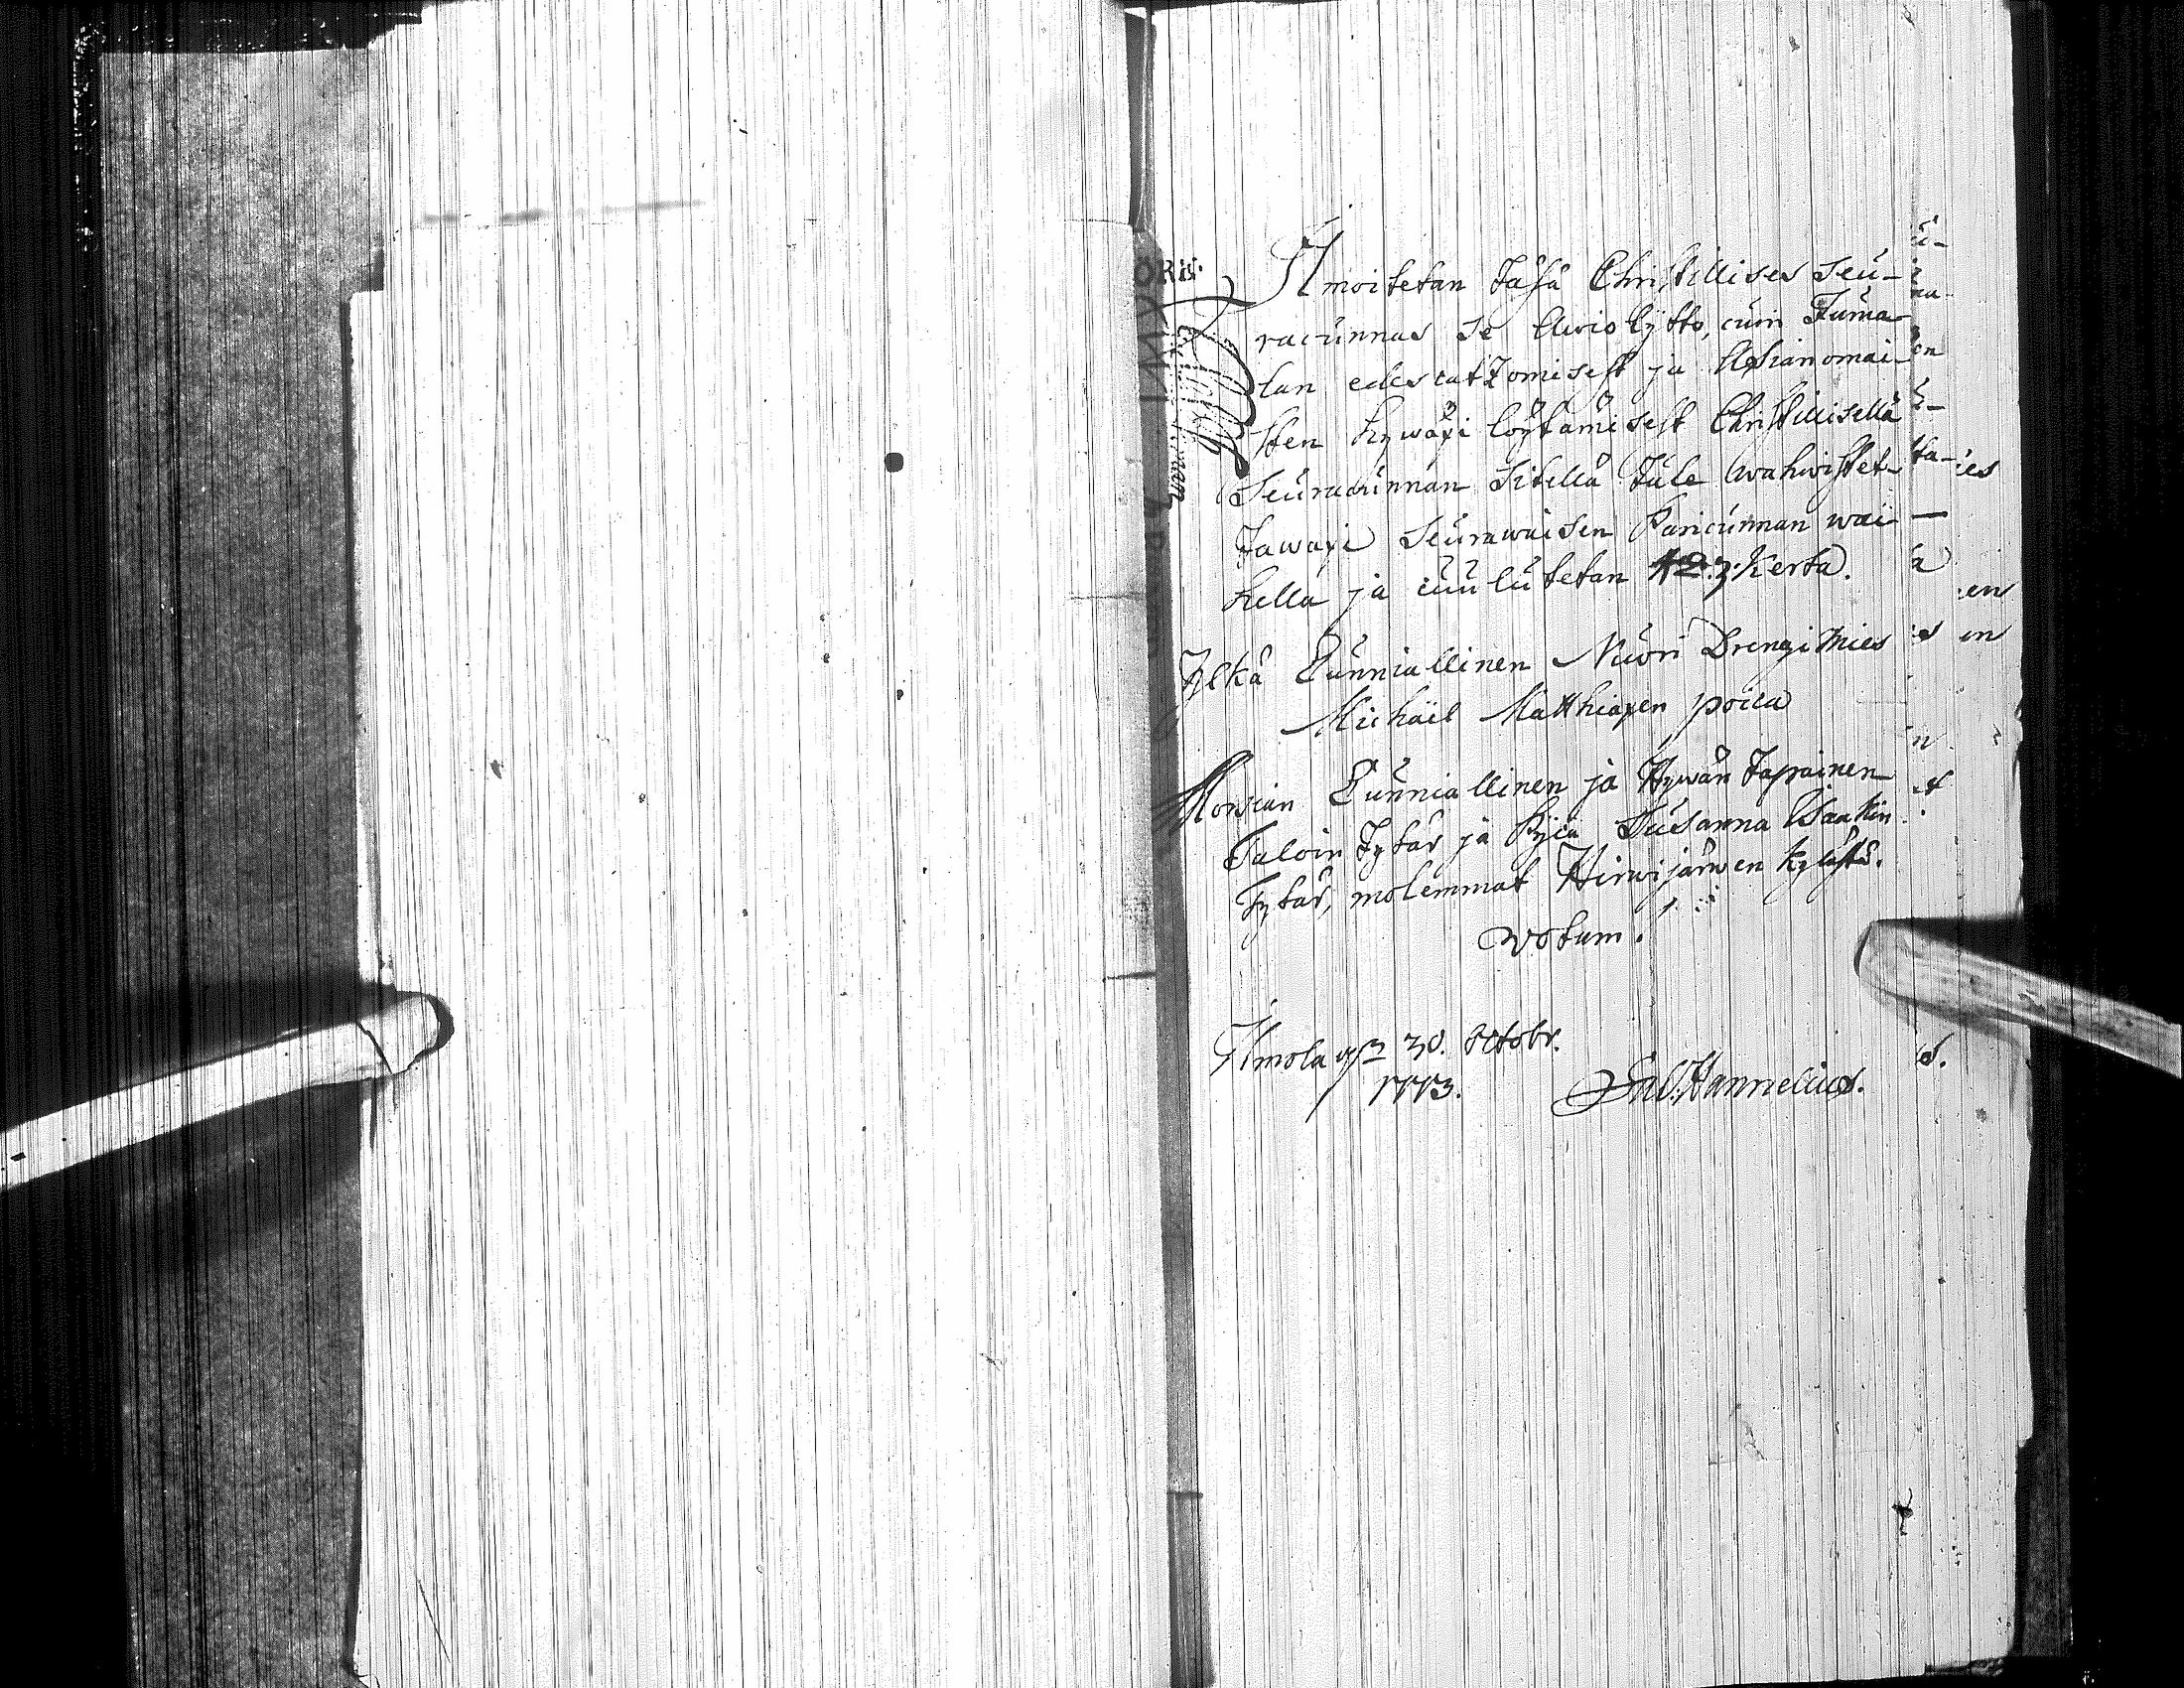 Ilmoitetan täsä Christillises Seu-
racunnas se Awiokätto, cuin Juma-
lan edescatzomisest ja Asianomai-
sten hywäxi löytämisest Christillisellä
Seuracunnan Sitellä tule wahwistet-
tawaxi seurawaisen Pariscunnan wai-
hella ja cuulutetan 1 2. 3. Kerta.
Yljkä Cunniallinen Nuori Drengi Mies
Michäil Matthiaxen poica
Morsian Cunniallinen ja Hywän Tapainen
Taloin Tytär ja Pijca Susanna Isaakin
Tytär, molemmat Hirwijärwen kylästä.
Votum.
Ilmola 30. Octobr.
1773.
Sal. Hannelius.